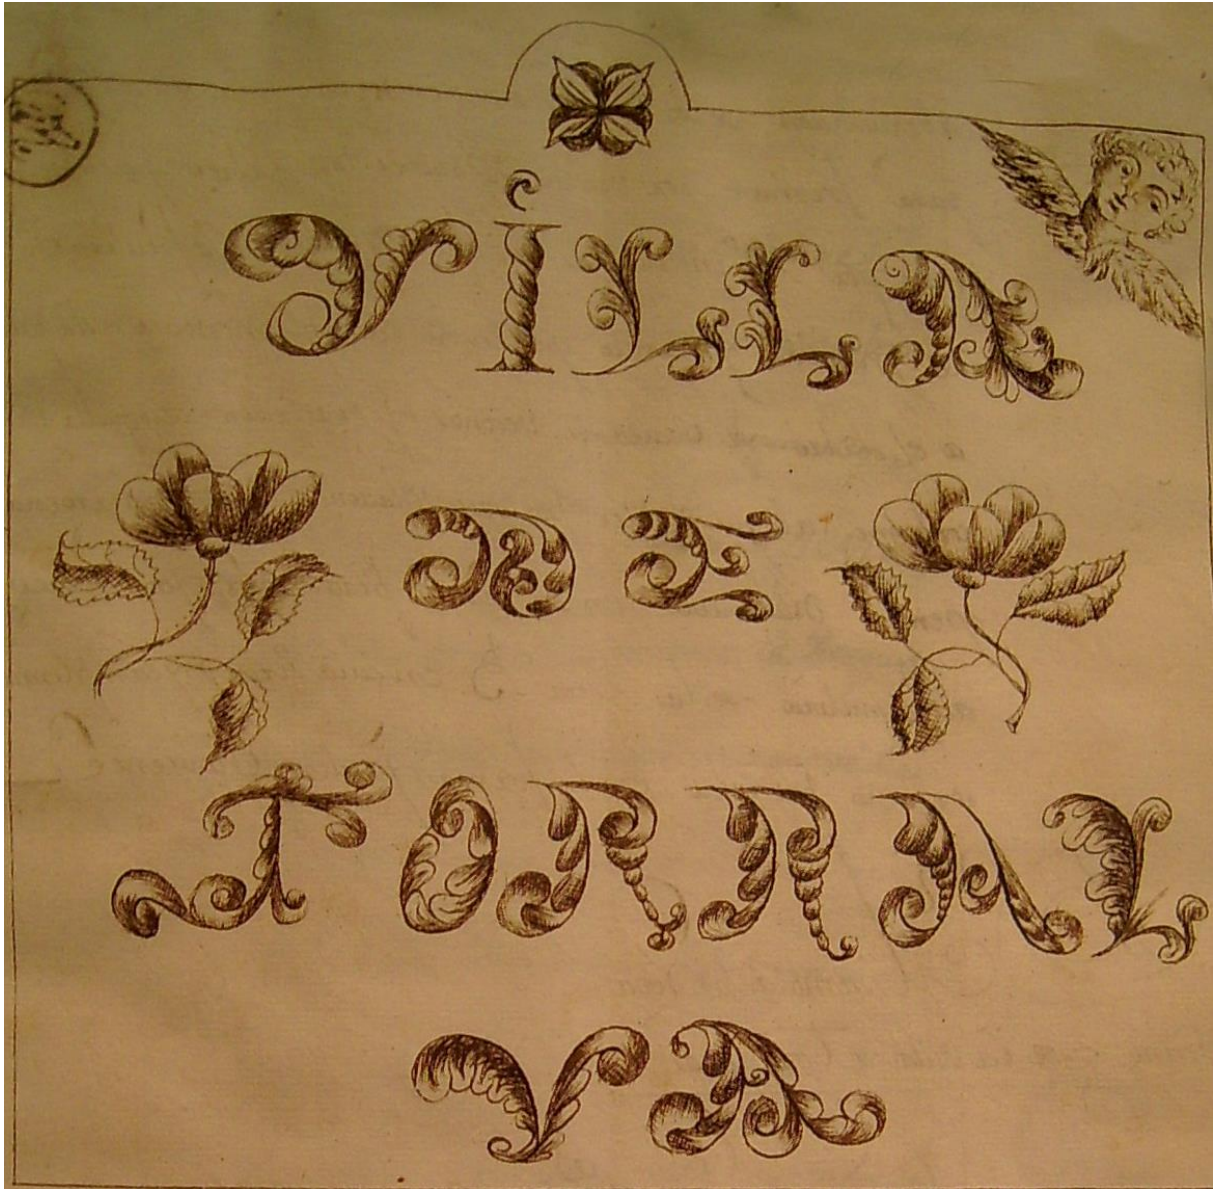 VILLA
DE
TORRAL
VA